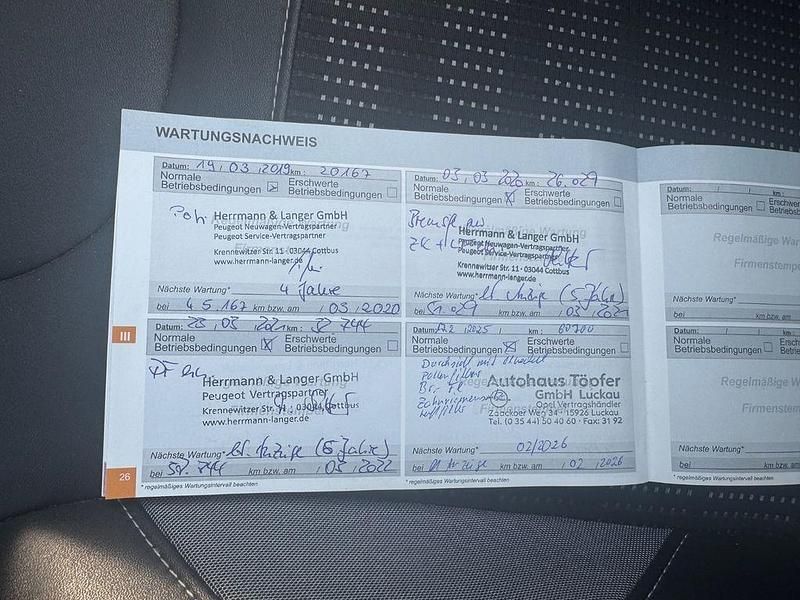 WARTUNGSNACHWEIS
Datum: 19.03.2019 km: 20167
Normale Betriebsbedingungen
Erschwerte Betriebsbedingungen
Herrmann & Langer GmbH
Peugeot Neuwagen-Vertragspartner
Peugeot Service-Vertragspartner
Krennewitzer Str. 11 · 03044 Cottbus
www.herrmann-langer.de
Nächste Wartung* 4 Jahre
bei 45.167 km bzw. am 03 2020
Datum: 03.03 2020 km: 26.029
Normale Betriebsbedingungen
Erschwerte Betriebsbedingungen
Herrmann & Langer GmbH
Peugeot Neuwagen-Vertragspartner
Peugeot Service-Vertragspartner
Krennewitzer Str. 11 · 03044 Cottbus
www.herrmann-langer.de
Nächste Wartung* lt. Anzeige (5 Jahre)
bei 51.029 km bzw. am 03 2021
III
Datum: 23.03 2021 km: 32.744
Normale Betriebsbedingungen
Erschwerte Betriebsbedingungen
Herrmann & Langer GmbH
Peugeot Vertragspartner
Krennewitzer Str. 11 · 03044 Cottbus
www.herrmann-langer.de
Nächste Wartung* lt. Anzeige (6 Jahre)
bei 57.744 km bzw. am 03 2022
Datum 2025 km: 60700
Normale Betriebsbedingungen
Erschwerte Betriebsbedingungen
Durchsicht mit
Pollenfilter
Zahnriemen
Luftfilter
Autohaus Töpfer
GmbH Luckau
Opel Vertragshändler
Zaackoer Weg 34 · 15926 Luckau
Tel. (0 35 44) 50 40 60 · Fax: 31 92
Nächste Wartung* 02/2026
bei lt Anzeige km bzw. am 02 2026
26
* regelmäßiges Wartungsintervall beachten
* regelmäßiges Wartungsintervall beachten
Datum: km:
Normale Betriebsbedingungen
Regelmäßige War
Firmenstempe
Nächste Wartung*
bei km bzw. am
Datum: km:
Normale Betriebsbedingungen
Regelmäßige W
Firmenstem
Nächste Wartung*
bei km bzw. am
* regelmäßiges Wartungsintervall beachten